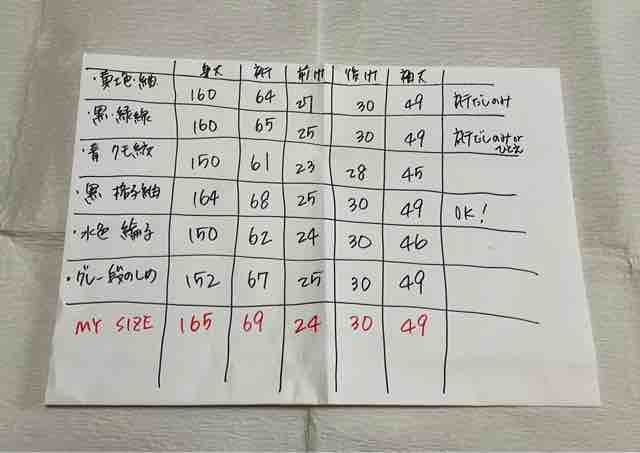 身丈 裄 前巾 後巾 袖丈
・黄土色・紬 160 64 27 30 49 裄だしのみ
・黒・緑線 160 65 25 30 49 裄だしのみか
ひとえ
・青 クモ紋 150 61 23 28 45
・黒 格子紬 164 68 25 30 49 OK!
・水色 綸子 150 62 24 30 46
・グレー段のしめ 152 67 25 30 49
MY SIZE 165 69 24 30 49